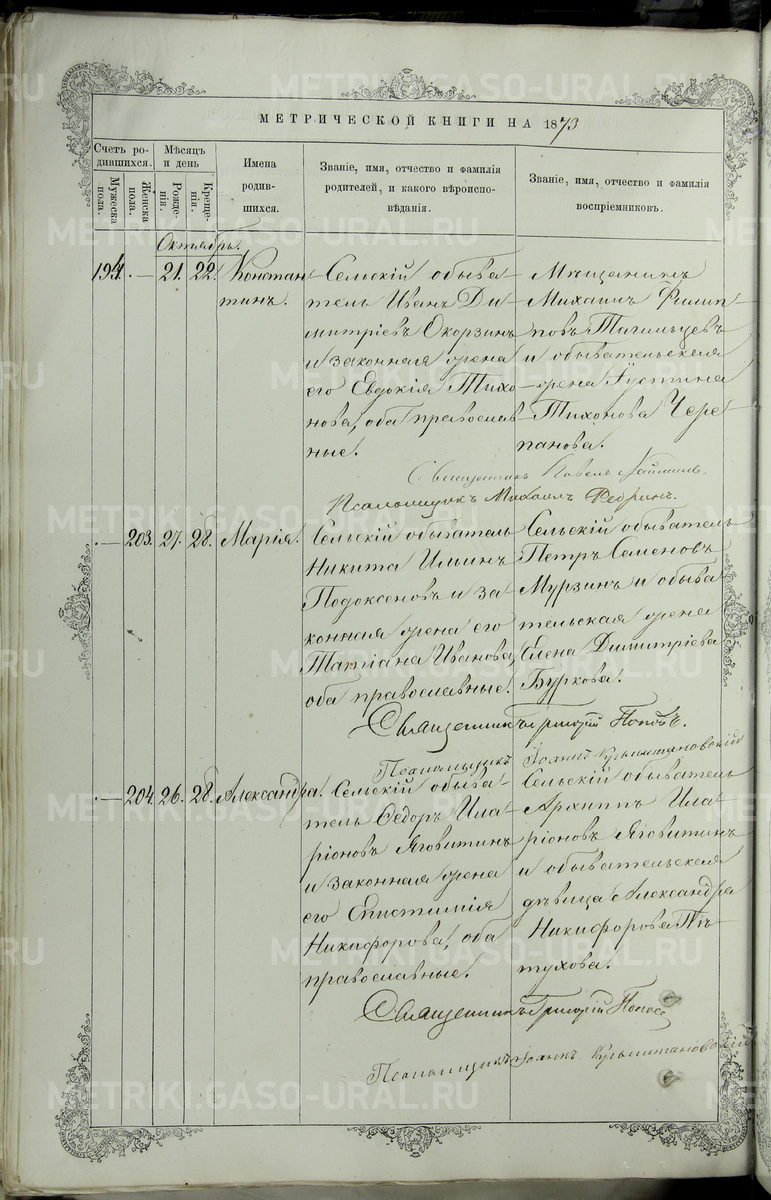 МЕТРИЧЕСКОЙ КНИГИ НА 1873
Счетъ ро-
дившихся.
Мужеска
пола.
Женска
пола.
Мѣсяцъ
и день
Рожде-
нія.
Креще-
нія.
Имена
родив-
шихся.
Званіе, имя, отчество и фамилія
родителей, и какого вѣроиспо-
вѣданія.
Званіе, имя, отчество и фамилія
воспріемниковъ.
Октябрь.
194. — 21. 22. Констан
тинъ.
Сельскій обыва
тель Иванъ Ди-
митріевъ Окорзинъ
и законная жена
его Евдокія Тихо
нова, оба православ
ные.
Мѣщанинъ
Михаилъ Филип-
повъ
и обывательская
жена Іустина
Тихонова Чере
панова.
Священникъ Павелъ
Псаломщикъ Михаилъ Федринъ.
— 203. 27. 28. Марія.
Сельскій обыватель
Никита Ильинъ
Подоксеновъ и за
конная жена его
Татіана Иванова,
оба православные.
Сельскій обыватель
Петръ Семеновъ
Мурзинъ и обыва
тельская жена
Елена Димитріева
Буркова.
Священникъ Григорій Поповъ.
Псаломщикъ Іоаннъ Кузьминановскій
— 204. 26. 28. Александра.
Сельскій обыва-
тель Ѳедоръ Ила-
ріоновъ Яговитинъ
и законная жена
его Епистимія
Никифорова, оба
православные.
Сельскій обыватель
Архиппъ Ила-
ріоновъ Яговитинъ
и обывательская
дѣвица Александра
Никифорова Пѣ-
тухова.
Священникъ Григорій Поповъ
Псаломщикъ Іоаннъ
METRIKI.GASO-URAL.RU